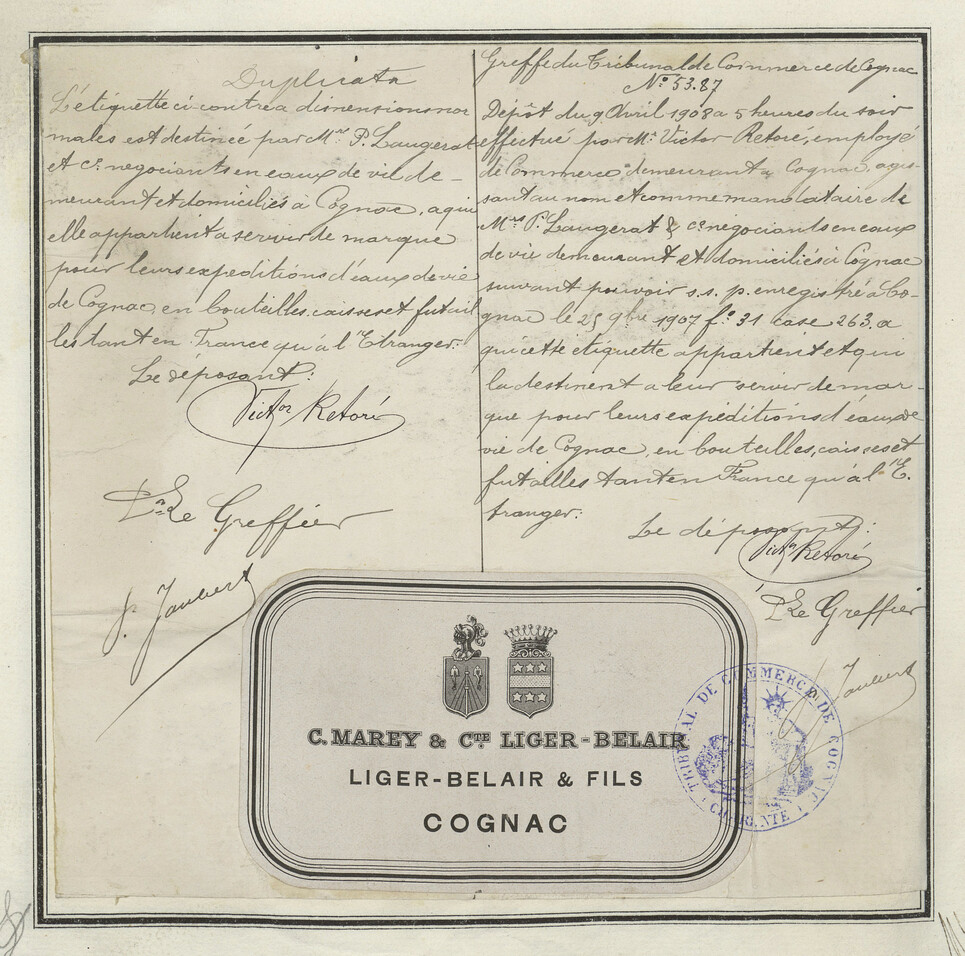 Duplicata
L'étiquette ci-contre a dimensions nor
males est destinée par Mrs P. Laugerat
et Cie négociants en eaux de vie de-
meurant et domiciliés à Cognac, a qui
elle appartient a servir de marque
pour leurs expéditions d'eaux de vie
de Cognac, en bouteilles, caisses et futail
les tant en France qu'à l'Etranger.
Le déposant:
Victor Retoré
Pr Le Greffier
J. Jaubert
Greffe du Tribunal de Commerce de Cognac
No 53.87
Dépôt du 9 Avril 1908 a 5 heures du soir
effectué par Mr Victor Retoré, employé
de Commerce demeurant a Cognac, agis-
sant au nom et comme mandataire de
Mrs P. Laugerat & Cie négociants en eaux
de vie demeurant et domiciliés à Cognac
suivant pouvoir s.s. p. enregistré à Co-
gnac le 25 9bre 1907 fo 31 case 263. a
qui cette étiquette appartient et qui
la destinent a leur servir de mar-
que pour leurs expéditions d'eaux de
vie de Cognac, en bouteilles, caisses et
futailles tant en France qu'à l'E.
tranger:
Le déposant:
Victor Retoré
Pr Le Greffier
Jaubert
C. MAREY & CTE LIGER-BELAIR
LIGER-BELAIR & FILS
COGNAC
TRIBUNAL DE COMMERCE DE COGNAC
(CHARENTE)